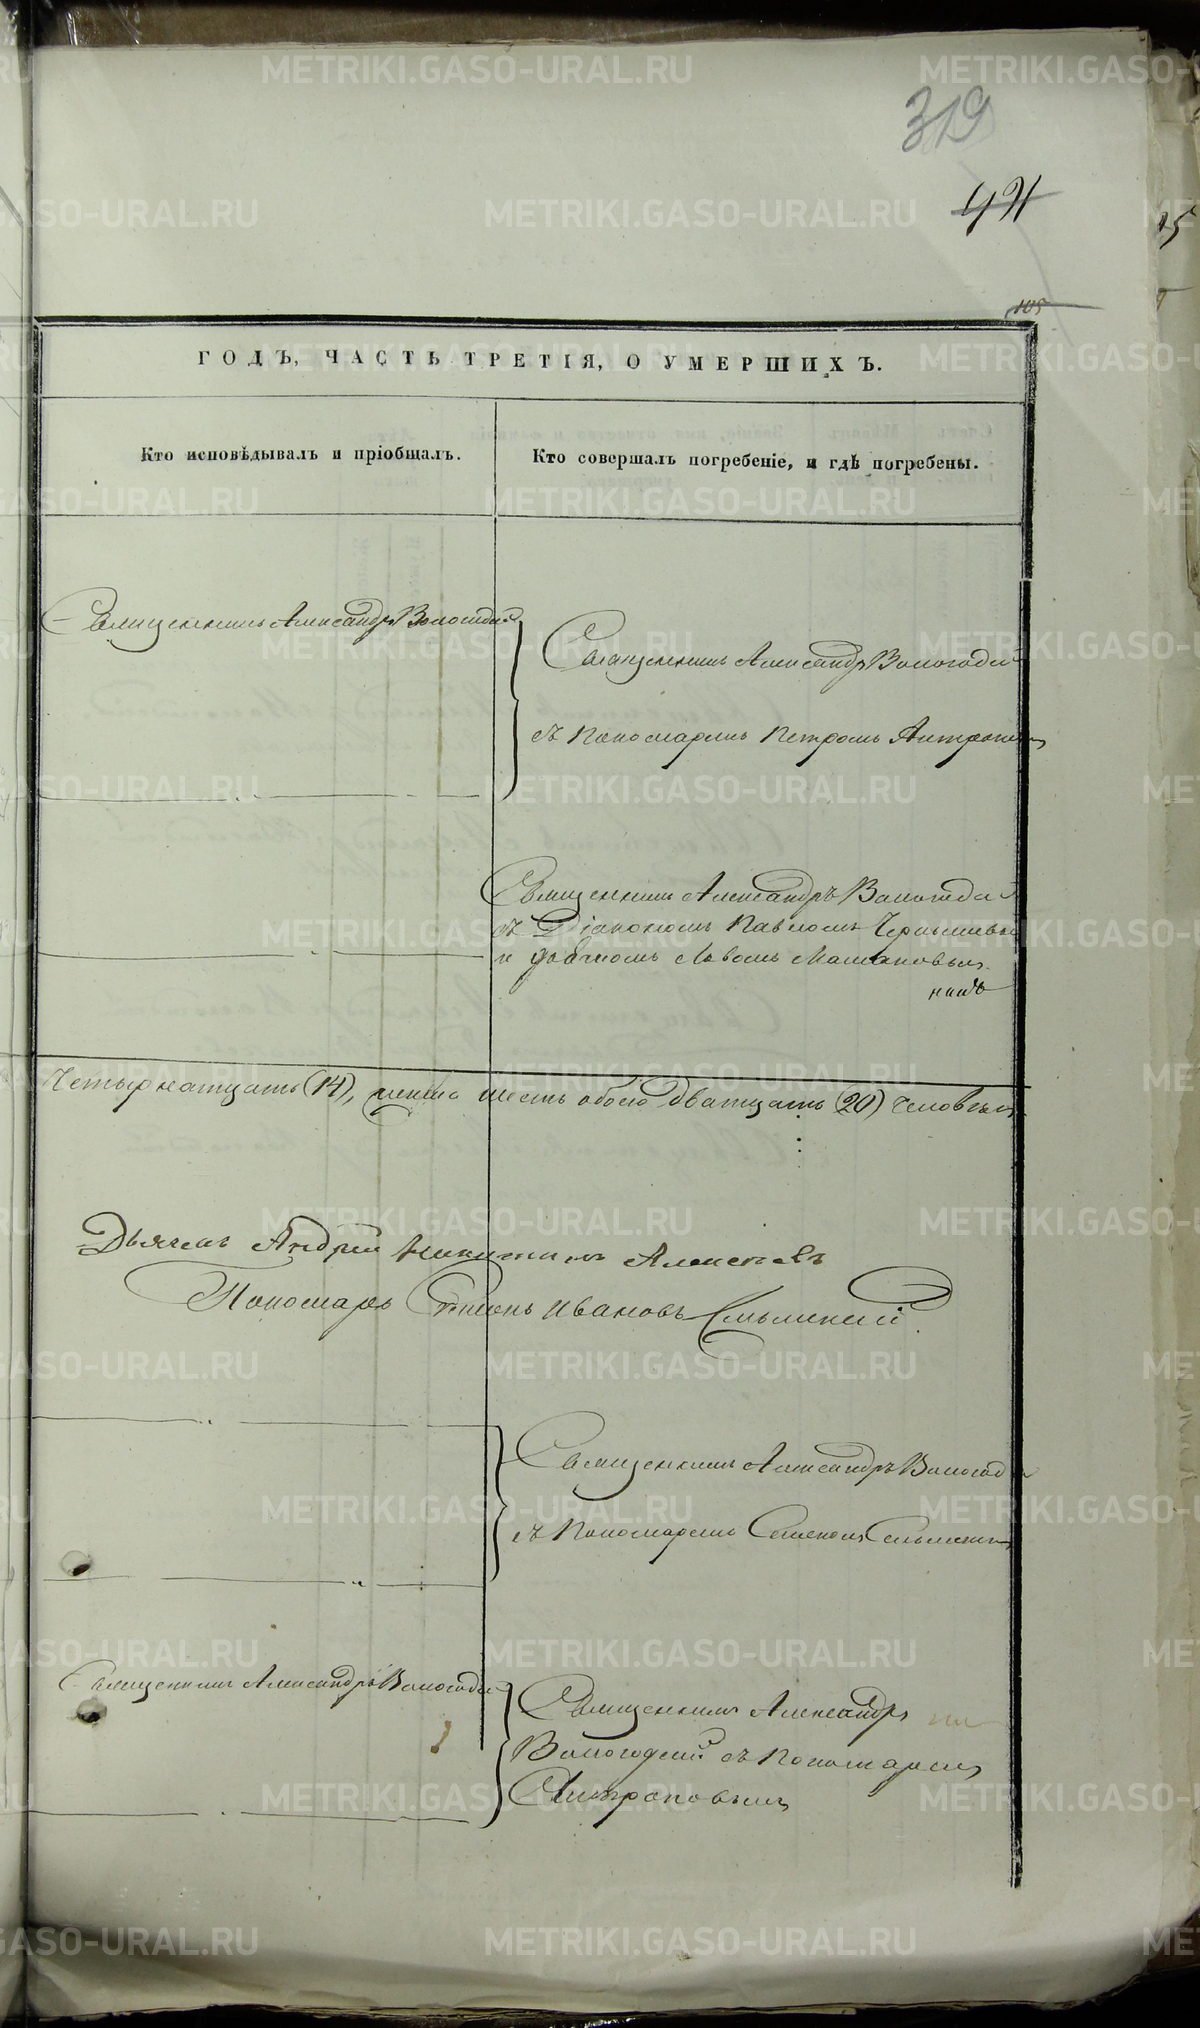 319
491
105
ГОДЪ, ЧАСТЬ ТРЕТІЯ, О УМЕРШИХЪ.
Кто исповѣдывалъ и пріобщалъ.
Кто совершалъ погребеніе, и гдѣ погребены.
Священникъ Александръ Вологодскій
Священникъ Александръ Вологодскій
съ Пономаремъ Петромъ
Священникъ Александръ Вологодскій
съ Діакономъ Павломъ
и дьячкомъ Львомъ
Четырнатцать (14), женска шесть обоего дватцать (20) человѣкъ
Дьячекъ Андрей Никитинъ Алексѣевъ
Пономарь Семенъ Ивановъ
Священникъ Александръ Вологод
съ Пономаремъ Семеномъ
Священникъ Александръ Вологодскій
Священникъ Александръ
Вологодскій съ Пономаремъ
Антроповымъ
METRIKI.GASO-URAL.RU